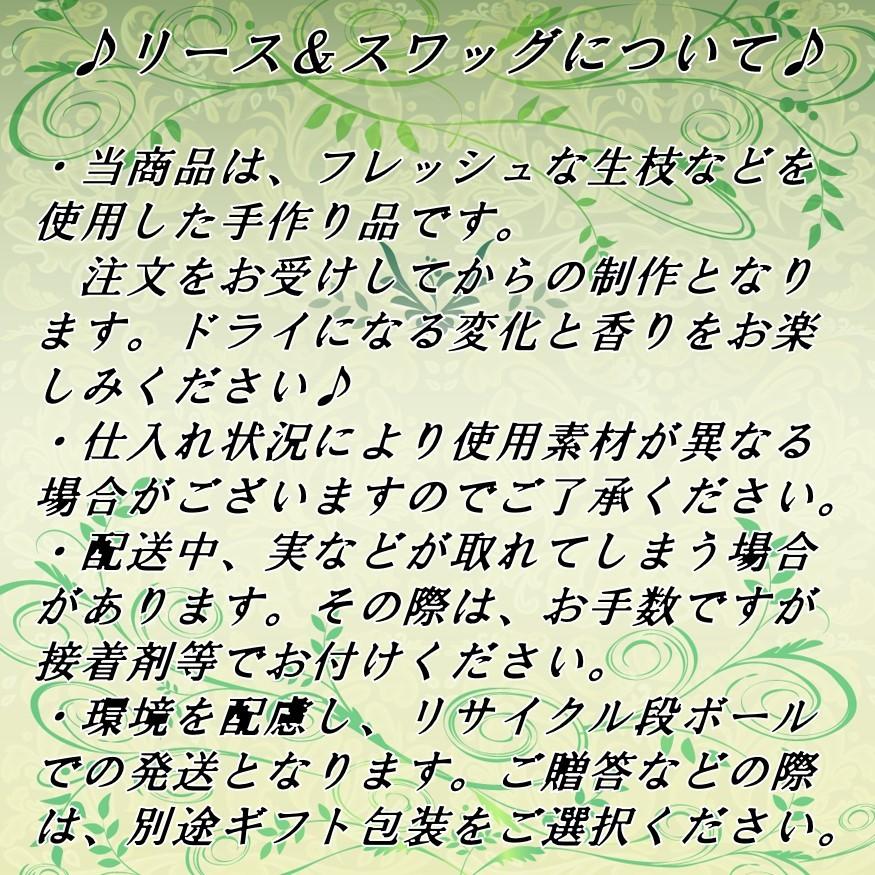 ♪リース＆スワッグについて♪
・当商品は、フレッシュな生枝などを
使用した手作り品です。
　注文をお受けしてからの制作となり
ます。ドライになる変化と香りをお楽
しみください♪
・仕入れ状況により使用素材が異なる
場合がございますのでご了承ください。
・配送中、実などが取れてしまう場合
があります。その際は、お手数ですが
接着剤等でお付けください。
・環境を配慮し、リサイクル段ボール
での発送となります。ご贈答などの際
は、別途ギフト包装をご選択ください。